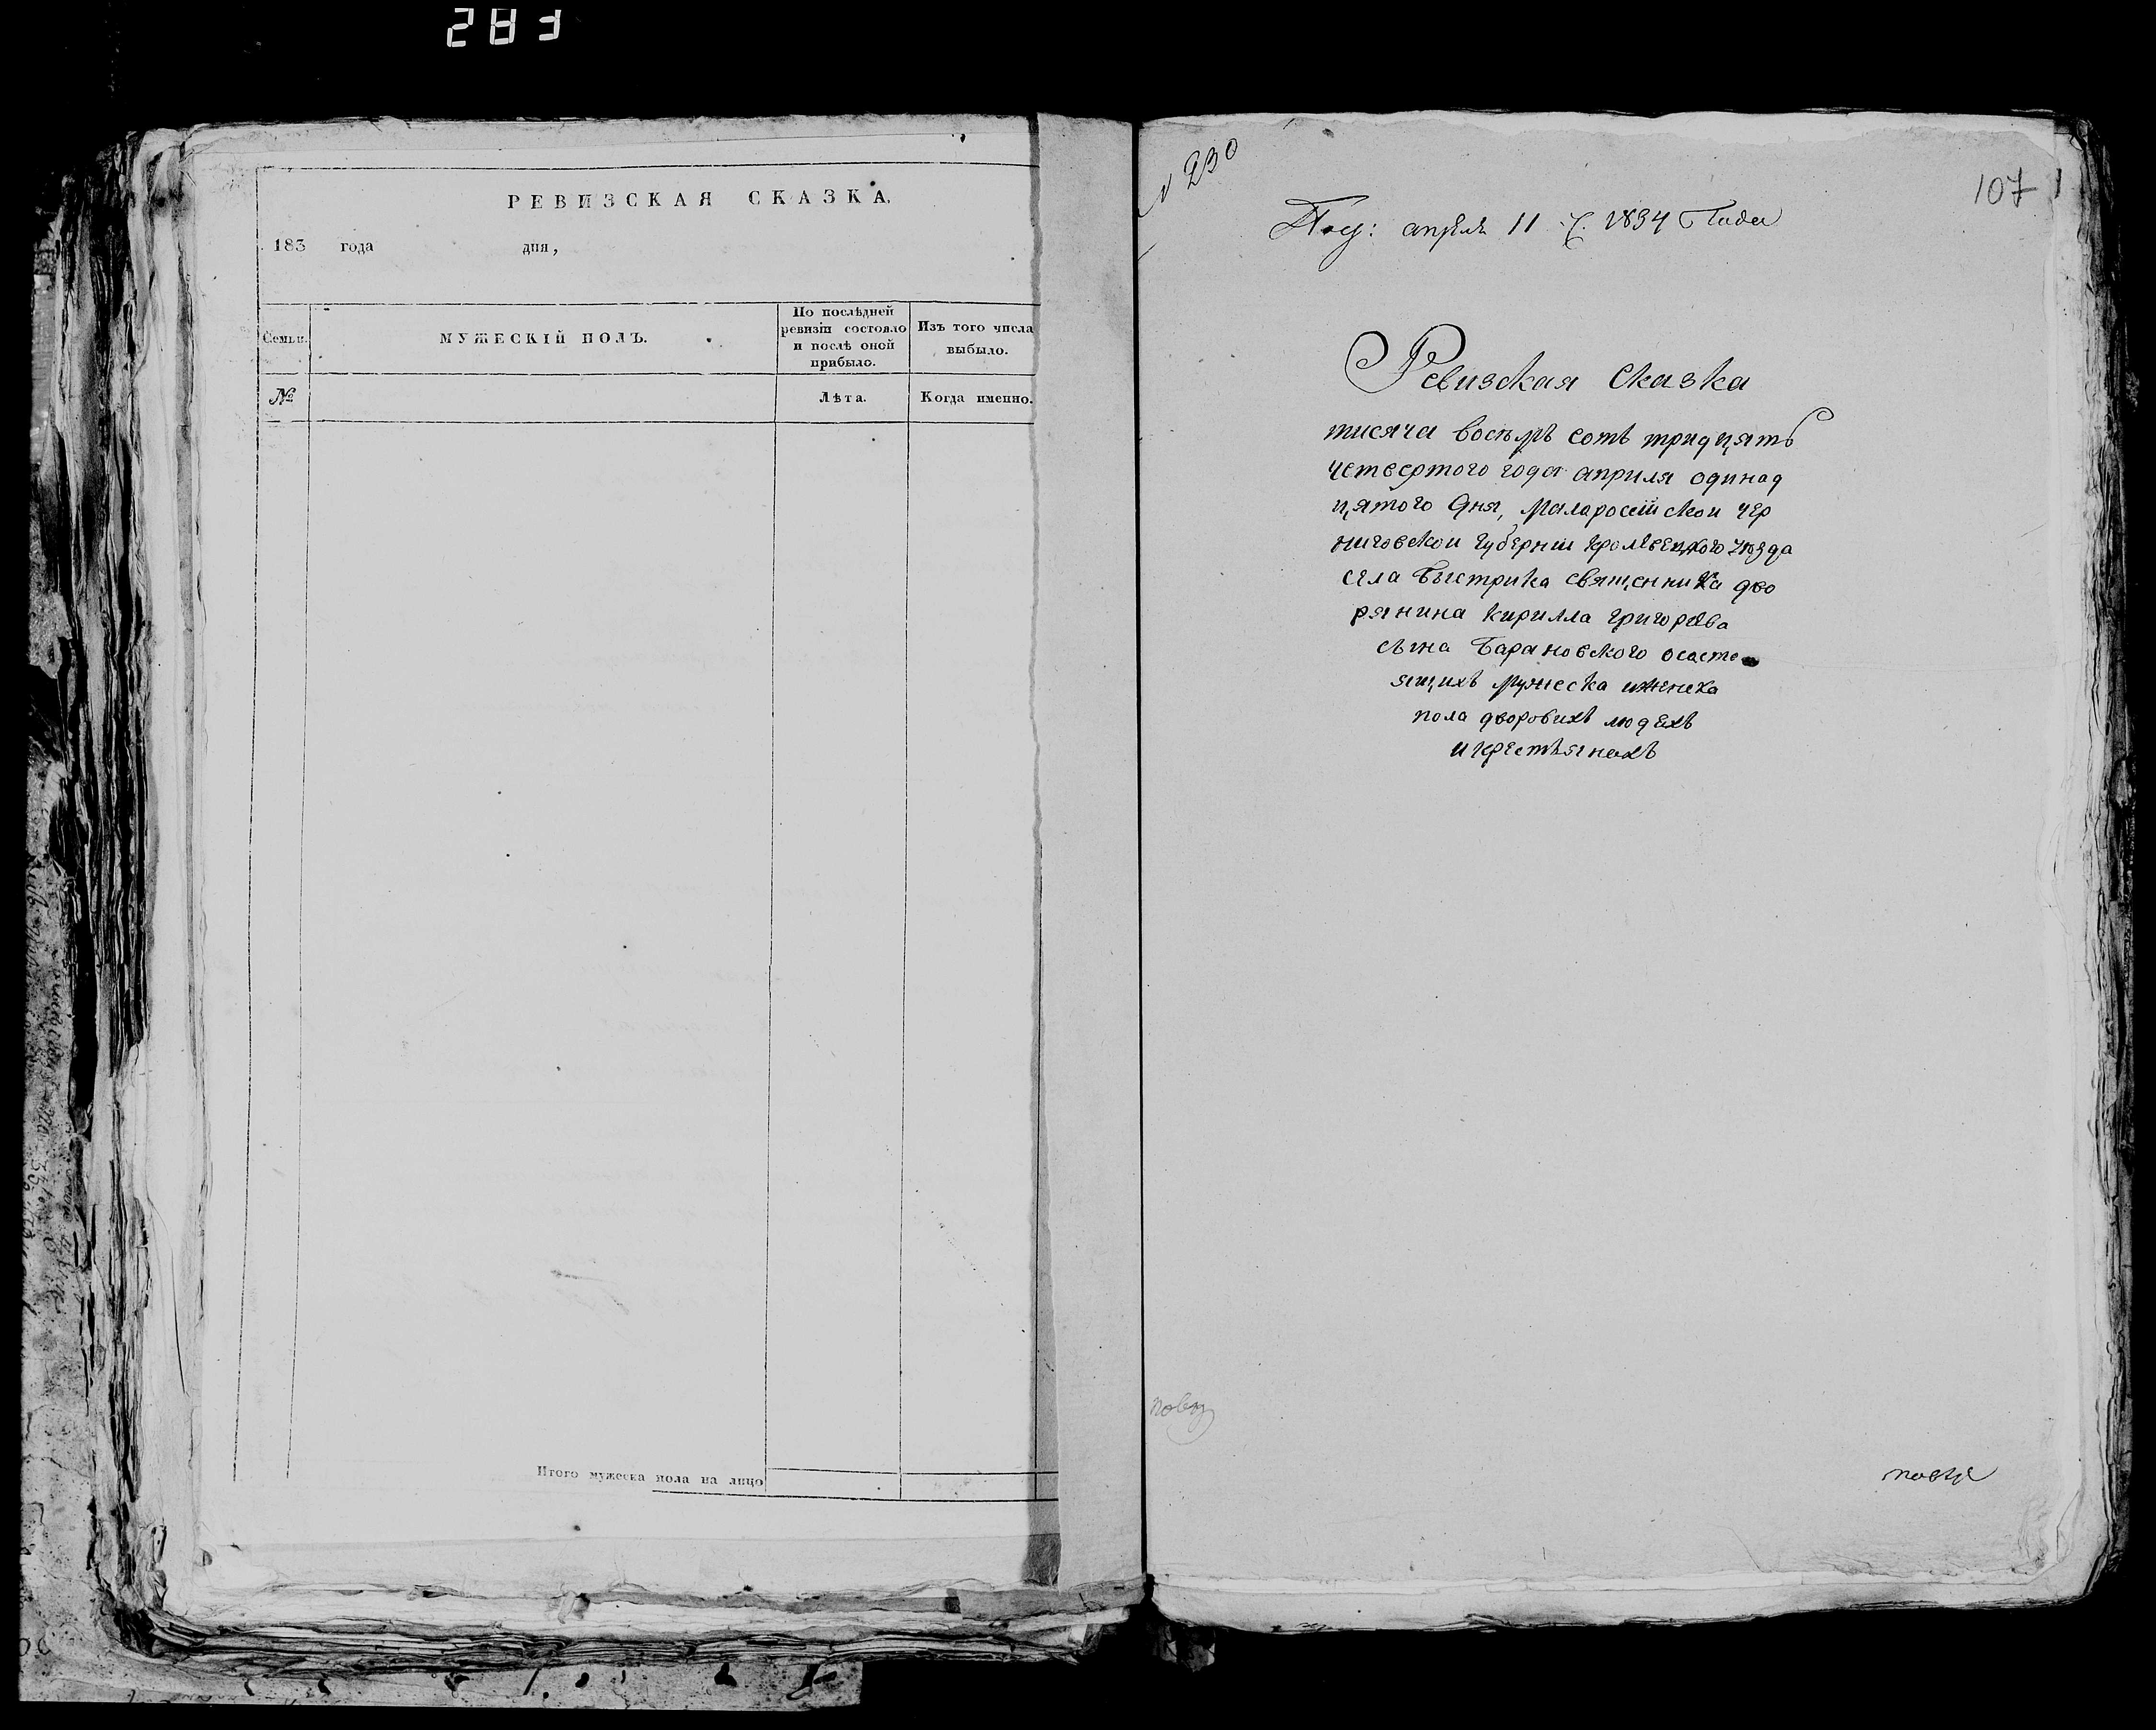 283
РЕВИЗСКАЯ СКАЗКА.
183 года дня,
Семьи.
МУЖЕСКІЙ ПОЛЪ.
По послѣдней
ревизіи состояло
и послѣ оной
прибыло.
Изъ того числа
выбыло.
№
Лѣта.
Когда именно.
Итого мужеска пола на лицо
N 230
107
апреля 11 ч. 1834 Года
Ревизская Сказка
тисяча восъмъ сотъ тридцятъ
четвертого года априля одинад
цятого дня, Маларосейской чер
ниговской губернии кролевецкого уезда
села Быстрика священника дво
рянина Кирилла Григорева
сына Барановского осасто
ящихъ мужеска иженска
пола дворовихъ людехъ
икрестъянахъ